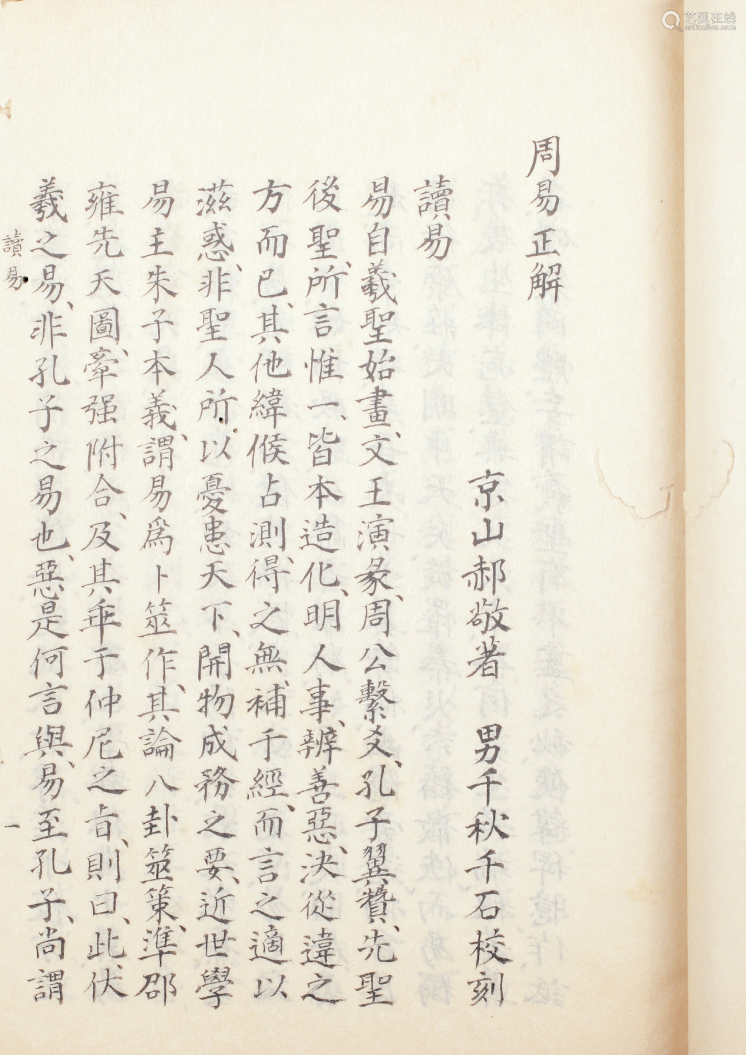 周易正解
京山郝敬著　男千秋千石校刻
讀易
易自羲聖始畫、文王演彖、周公繫爻、孔子翼贊、先聖
後聖、所言惟一、皆本造化、明人事、辨善惡、決從違之
方而已、其他緯候占測、得之無補于經、而言之適以
滋惑、非聖人所以憂患天下、開物成務之要、近世學
易主朱子本義、謂易爲卜筮作、其論八卦筮策、準邵
雍先天圖、牽强附合、及其乖于仲尼之旨、則曰、此伏
羲之易、非孔子之易也、惡是何言與、易至孔子、尚謂
讀易
一
艺狐在线
artfoxlive.com